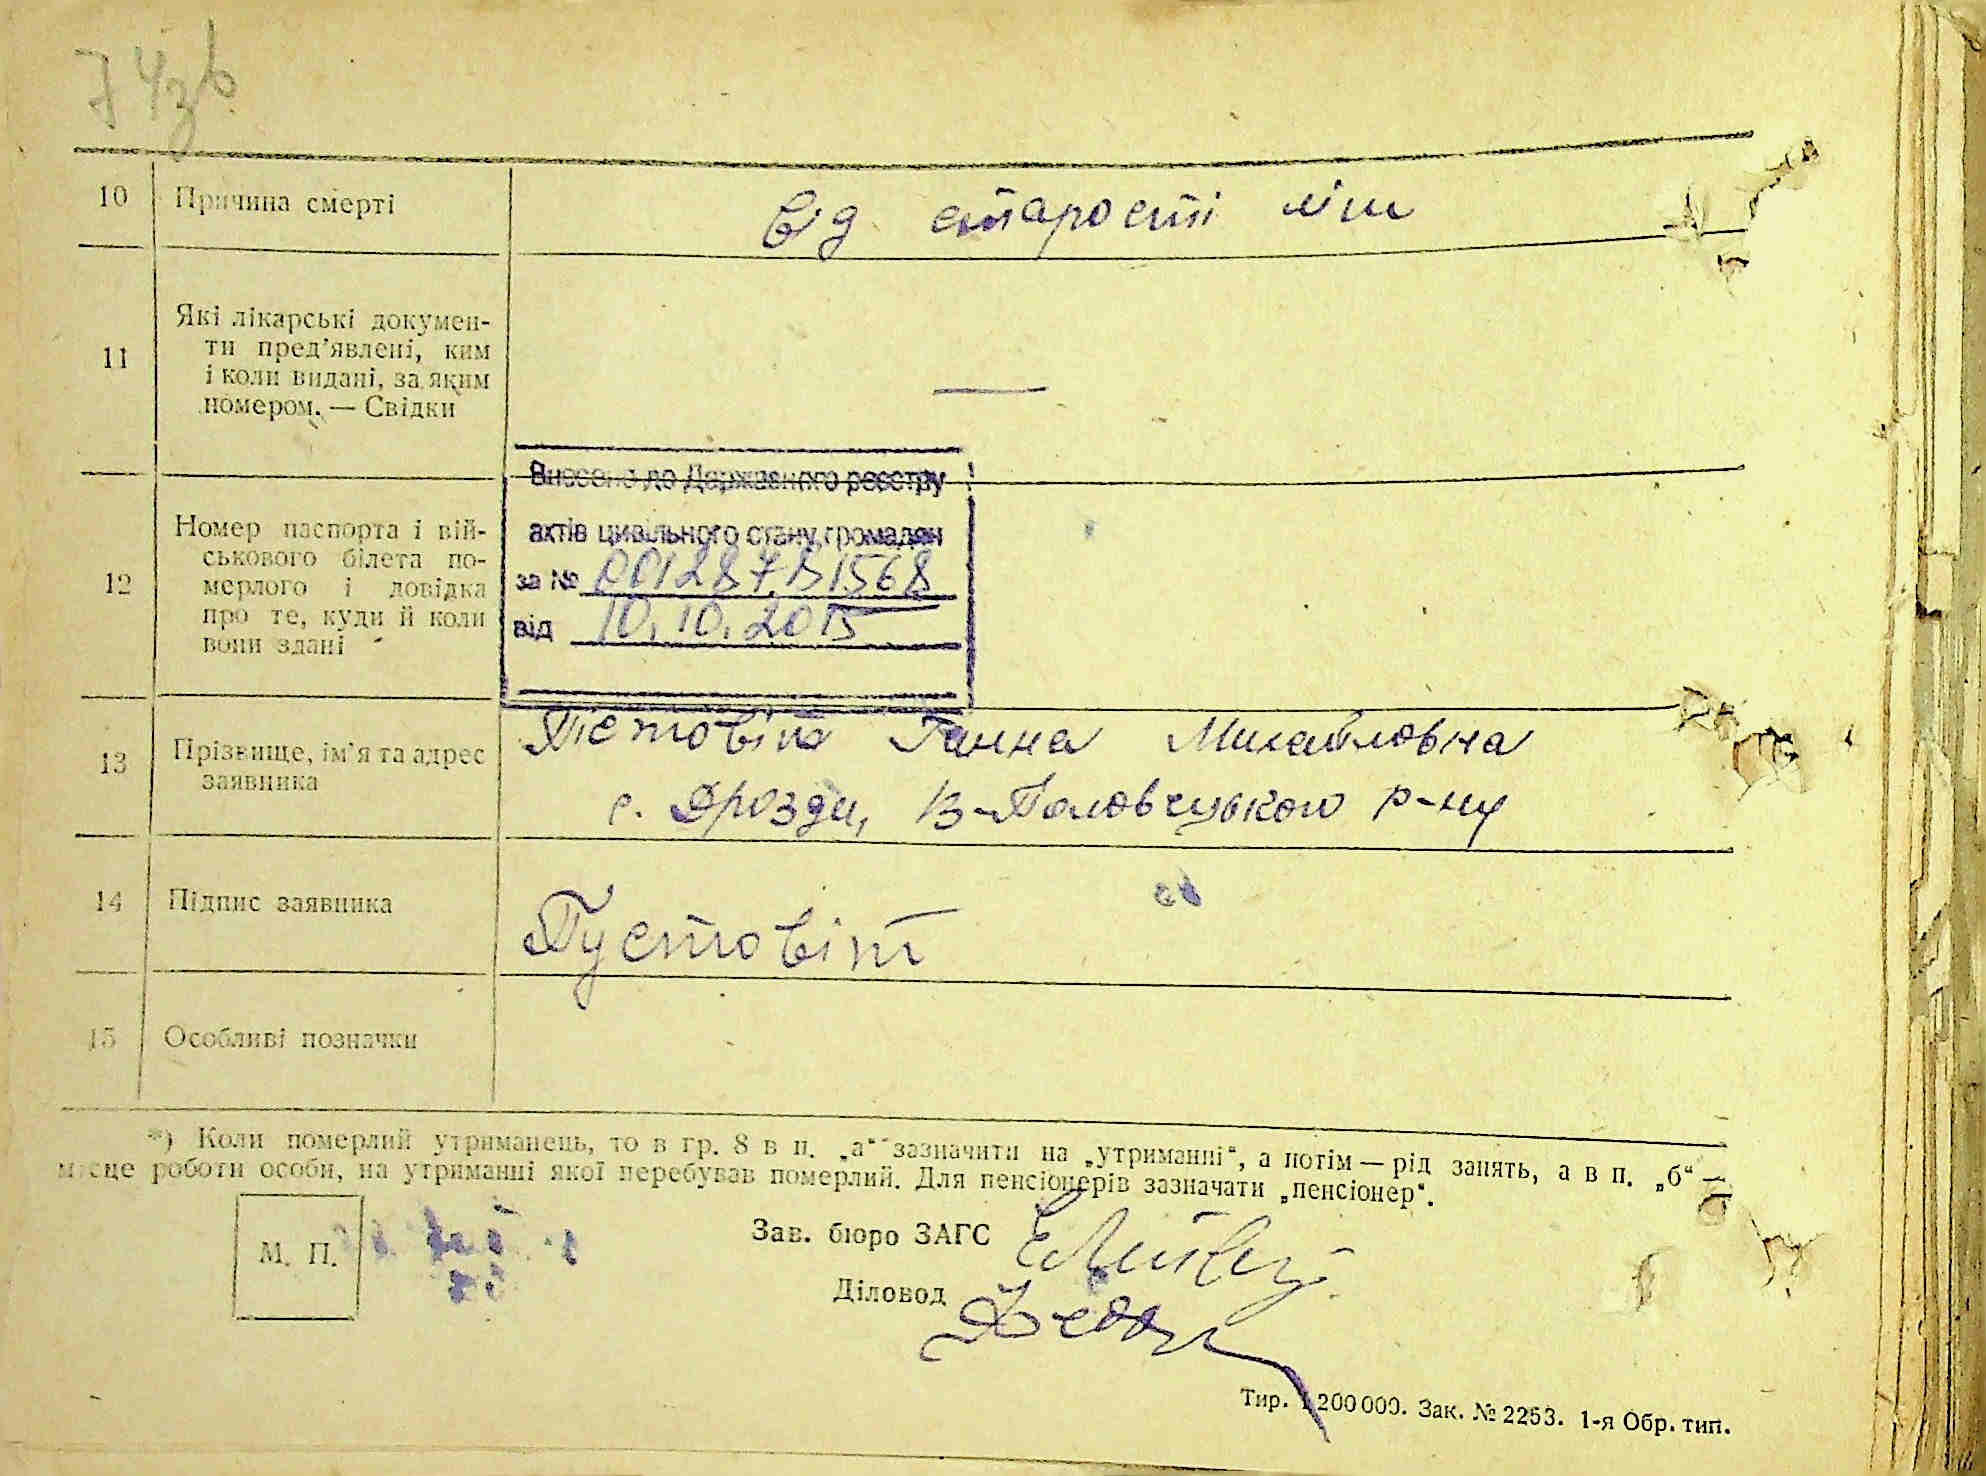 74зв
10 Причина смерті від старості літ
11 Які лікарські докумен-
ти пред'явлені, ким
і коли видані, за яким
номером. — Свідки —
Внесено до Державного реєстру
актів цивільного стану громадян
за № 00128781568
від 10.10.2015
12 Номер паспорта і вій-
ськового білета по-
мерлого і довідка
про те, куди й коли
вони здані
13 Прізвище, ім'я та адрес
заявника
Пустовіт Ганна Михайловна
с. Дрозди, В-Половецького р-ну
14 Підпис заявника Пустовіт
15 Особливі позначки
*) Коли померлий утриманець, то в гр. 8 в п. „а“ зазначити на „утриманні“, а потім — рід занять, а в п. „б“ —
місце роботи особи, на утриманні якої перебував померлий. Для пенсіонерів зазначати „пенсіонер“.
М. П.
Зав. бюро ЗАГС
Діловод
Тир. 1 200 000. Зак. № 2253. 1-я Обр. тип.